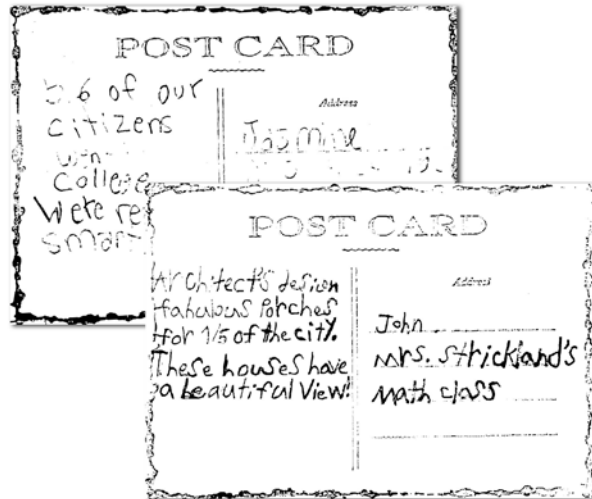 POST CARD
of our
citizens
College
We're
smart
Address
Jasmine
POST CARD
Architect's design
fabulous Porches
for 1/5 of the city.
These houses have
a beautiful View!
Address
John
Mrs. Strickland's
Math class